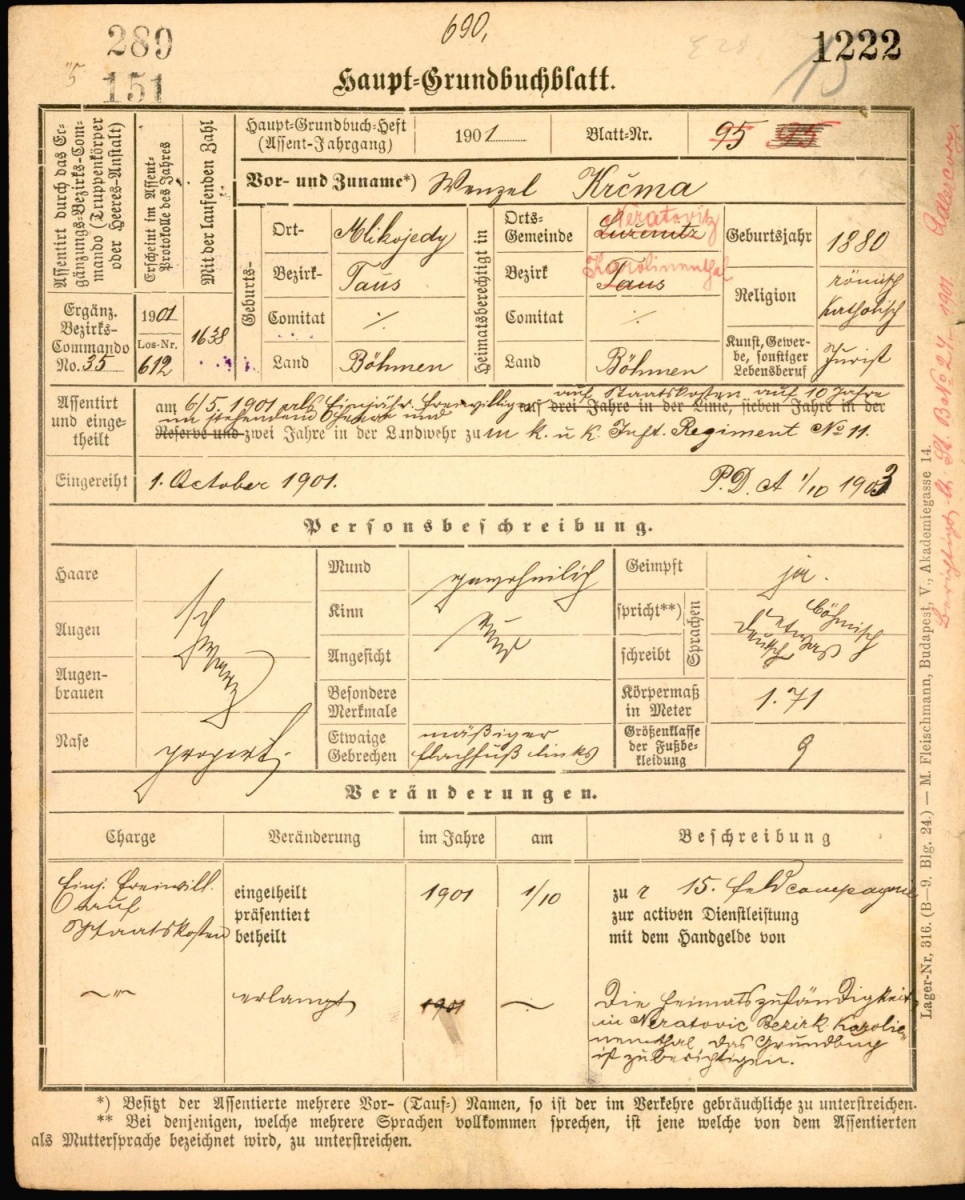 289
690,
1222
151
15
Haupt-Grundbuchblatt.
Assentirt durch das Er-
gänzungs-Bezirks-Com-
mando (Truppenkörper
oder Heeres-Anstalt)
Erscheint im Assent-
Protokolle des Jahres
Mit der laufenden Zahl
Ergänz.
Bezirks-
Commando
No. 35
1901
Los-Nr.
612
1638
Haupt-Grundbuch-Heft
(Assent-Jahrgang)
1901
Blatt-Nr.
95 95
Vor- und Zuname*) Wenzel Krčma
Geburts-
Ort- Mlikojedy
Bezirk- Taus
Comitat ·/·
Land Böhmen
Heimatsberechtigt in
Neratovitz
Orts-
Gemeinde Luženitz
Karolinenthal
Bezirk Taus
Comitat ·/·
Land Böhmen
Geburtsjahr 1880
Religion römisch
katholisch
Kunst, Gewer-
be, sonstiger
Lebensberuf
Jurist
Assentirt
und einge-
theilt
auf Staatskosten auf 10 Jahre
am 6/5. 1901 als Einjähr. Freiwilliger auf drei Jahre in der Linie, sieben Jahre in der
im stehenden Heere und
Reserve und zwei Jahre in der Landwehr zu m k. u k. Inft. Regiment No 11.
Eingereiht 1. October 1901. P. D. A 1/10 1903
Personsbeschreibung.
Haare
Augen
Augen-
brauen
schwarz
Nase proport.
Mund gewöhnlich
Kinn
Angesicht
rund
Besondere
Merkmale
Etwaige
Gebrechen
mäßiger
Flachfuß links
Geimpft ja.
spricht**)
schreibt
Sprachen
böhmisch
etwas
deutsch
Körpermaß
in Meter
1.71
Größenklasse
der Fußbe-
kleidung
9
Veränderungen.
Charge Veränderung im Jahre am Beschreibung
Einj. Freiwill.
auf
Staatskosten
eingetheilt
präsentiert
betheilt
1901 1/10
zur 15. Feldcompagnie
zur activen Dienstleistung
mit dem Handgelde von
—"— erlangt 1901 —·—
Die Heimatszuständigkeit
in Neratovic Bezirk Karoli-
nenthal, das Grundbuch
ist zu berichtigen.
*) Besitzt der Assentierte mehrere Vor- (Tauf-) Namen, so ist der im Verkehre gebräuchliche zu unterstreichen.
** Bei denjenigen, welche mehrere Sprachen vollkommen sprechen, ist jene welche von dem Assentierten
als Muttersprache bezeichnet wird, zu unterstreichen.
Lager-Nr, 316. (B—9. Blg. 24.) — M. Fleischmann, Budapest, V., Akademiegasse 14.
Berichtigt lt. St. B No 24, 1901